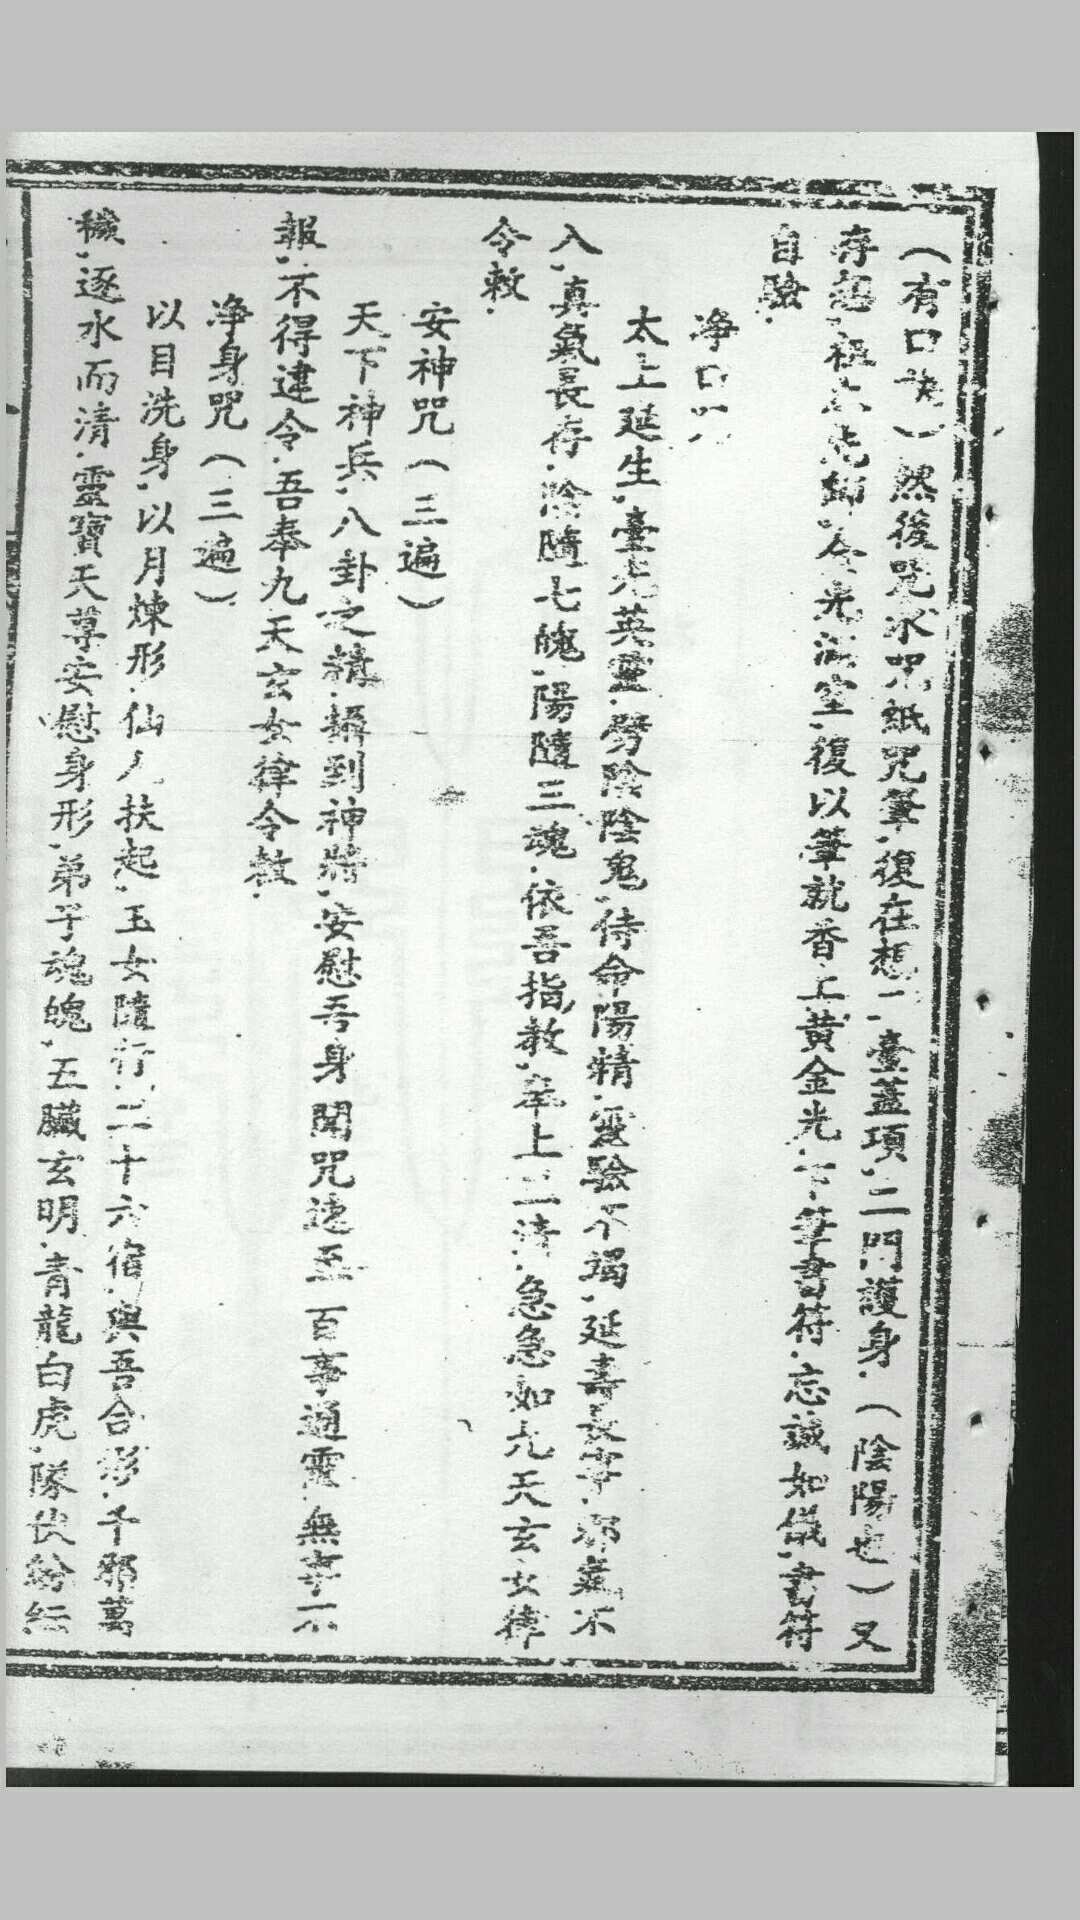 （有口訣）然後咒水咒紙咒筆．復在想一臺蓋項．二門護身．（陰陽也）又
存起．祖本先師．令光滿室．復以筆就香上黃金光．下筆書符．忘誠如儀．書符
自驗．
净口
太上延生．臺光英靈．劈陰陰鬼．侍命陽精．靈驗不竭．延壽長寧．邪氣不
入．真氣長存．陰隨七魄．陽隨三魂．依吾指教．奉上三清．急急如九天玄女律
令敕．
安神咒（三遍）
天下神兵．八卦之精．攝到神將．安慰吾身．聞咒速至．百事通靈．無事不
報．不得違令．吾奉九天玄女律令敕．
净身咒（三遍）
以目洗身．以月煉形．仙人扶起．玉女隨行．二十六宿．與吾合形．千邪萬
穢．逐水而清．靈寶天尊．安慰身形．弟子魂魄．五臟玄明．青龍白虎．隊仗紛紜